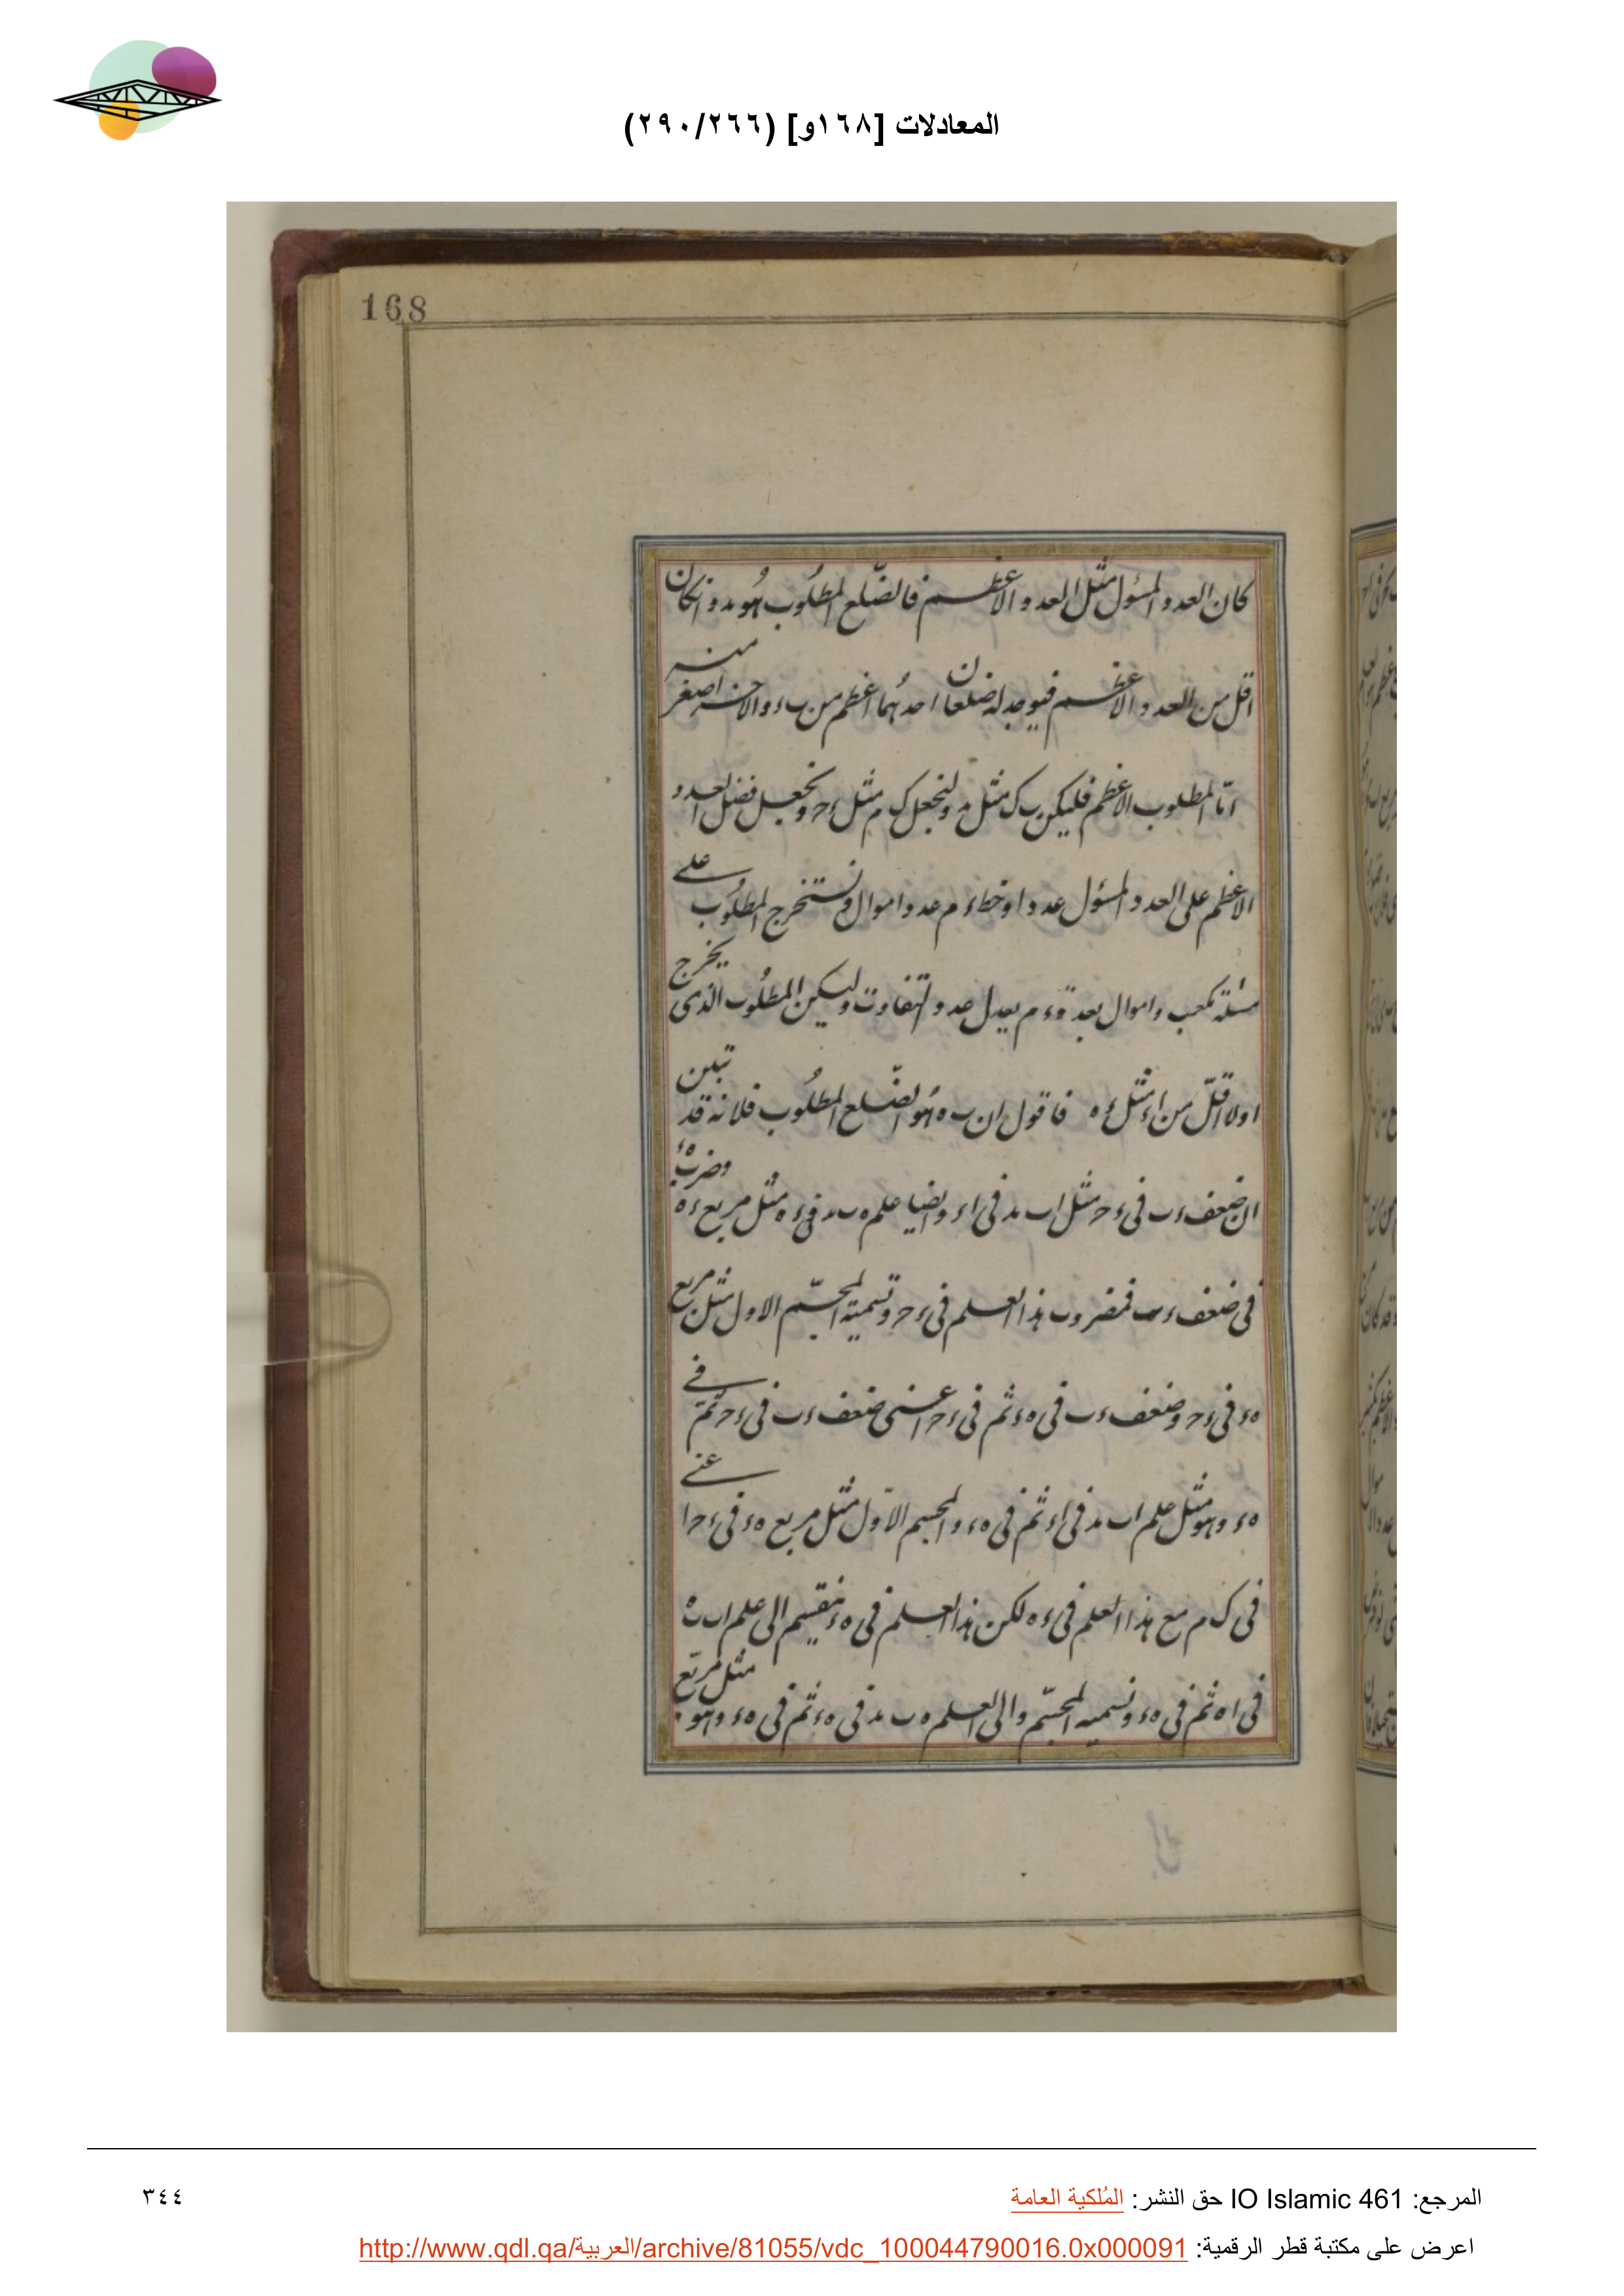 المعادلات [١٦٨و] (٢٩٠/٢٦٦)
168
كان العدد المسئول مثل العدد الاعظم فالضلع المطلوب هو ٮد وانكان
اقل من العدد الاعظم فيوجد له ضلعان احدهما اعظم من ٮء والاخر اصغر منه
امّا المطلوب الاعظم فليكن ٮك مثل ٮد ولنجعل ك م مثل ءح ونجعل فضل العدد
الاعظم على العدد المسئول عددا وخط ء م عدد اموال ونستخرج المطلوب على
مسئلة مكعب واموال بعدة ء م يعدل عدد التفاوت وليكن المطلوب الذى يخرج
اولا اقلّ من اء مثل ءه فاقول ان ٮه هو الضّلع المطلوب فلانه قد تبين
ان ضعف ءٮ فى ءح مثل اٮ ٮد فى اء وايضا علم ه ٮ ٮد فى ءه مثل مربع ءه وضرب ه ء
فى ضعف ءٮ فمضروب هذا العلم فى ءح وتسميته المجسّم الاول مثل مربع
ه ء فى ءح وضعف ءٮ فى ه ء ثم فى ءح اعنى ضعف ءٮ فى ءح ثم فى
ه ء وهو مثل علم اٮ ٮد فى اء ثم فى ه ء والمجسم الاوّل مثل مربع ه ء فى ءح اعنى
فى ك م مع هذا العلم فى ءه لكن هذا العلم فى ه ء ينقسم الى علم اٮ ٮه
فى اه ثم فى ه ء ونسميه المجسّم والى العلم ه ٮ ٮد فى ه ء ثم فى ه ء وهو مثل مربع
المرجع: IO Islamic 461 حق النشر: المُلكية العامة
٣٤٤
اعرض على مكتبة قطر الرقمية: http://www.qdl.qa/العربية/archive/81055/vdc_100044790016.0x000091